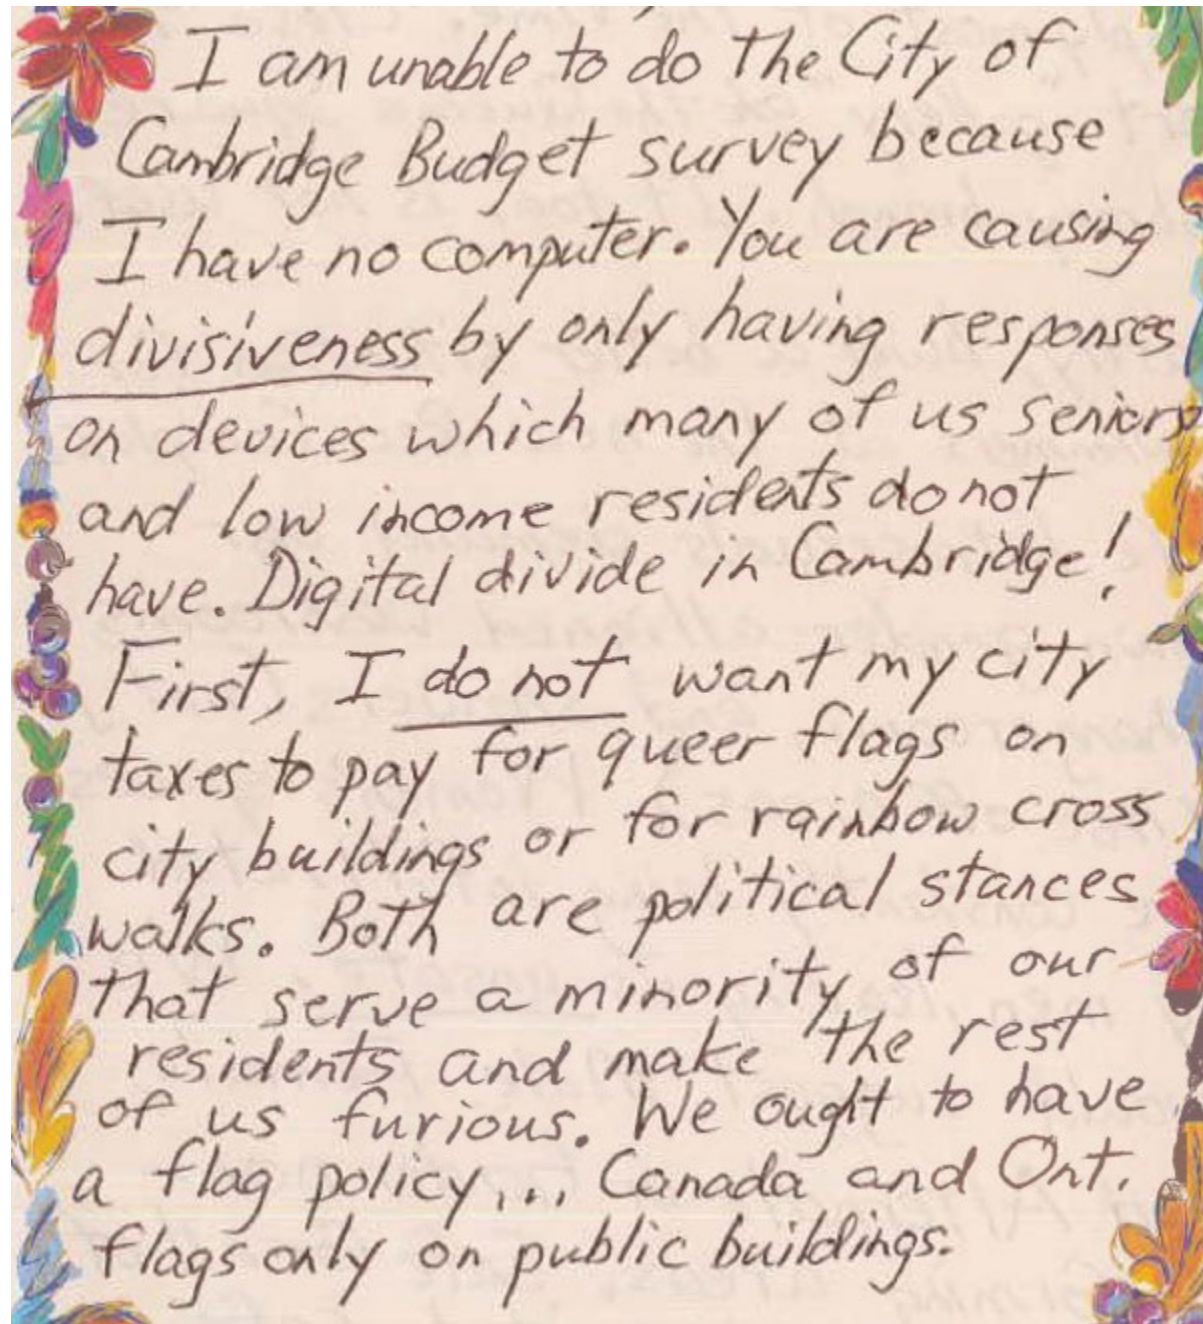 I am unable to do the City of
Cambridge Budget survey because
I have no computer. You are causing
divisiveness by only having responses
on devices which many of us seniors
and low income residents do not
have. Digital divide in Cambridge!
First, I do not want my city
taxes to pay for queer flags on
city buildings or for rainbow cross
walks. Both are political stances
that serve a minority of our
residents and make the rest
of us furious. We ought to have
a flag policy... Canada and Ont.
flags only on public buildings.